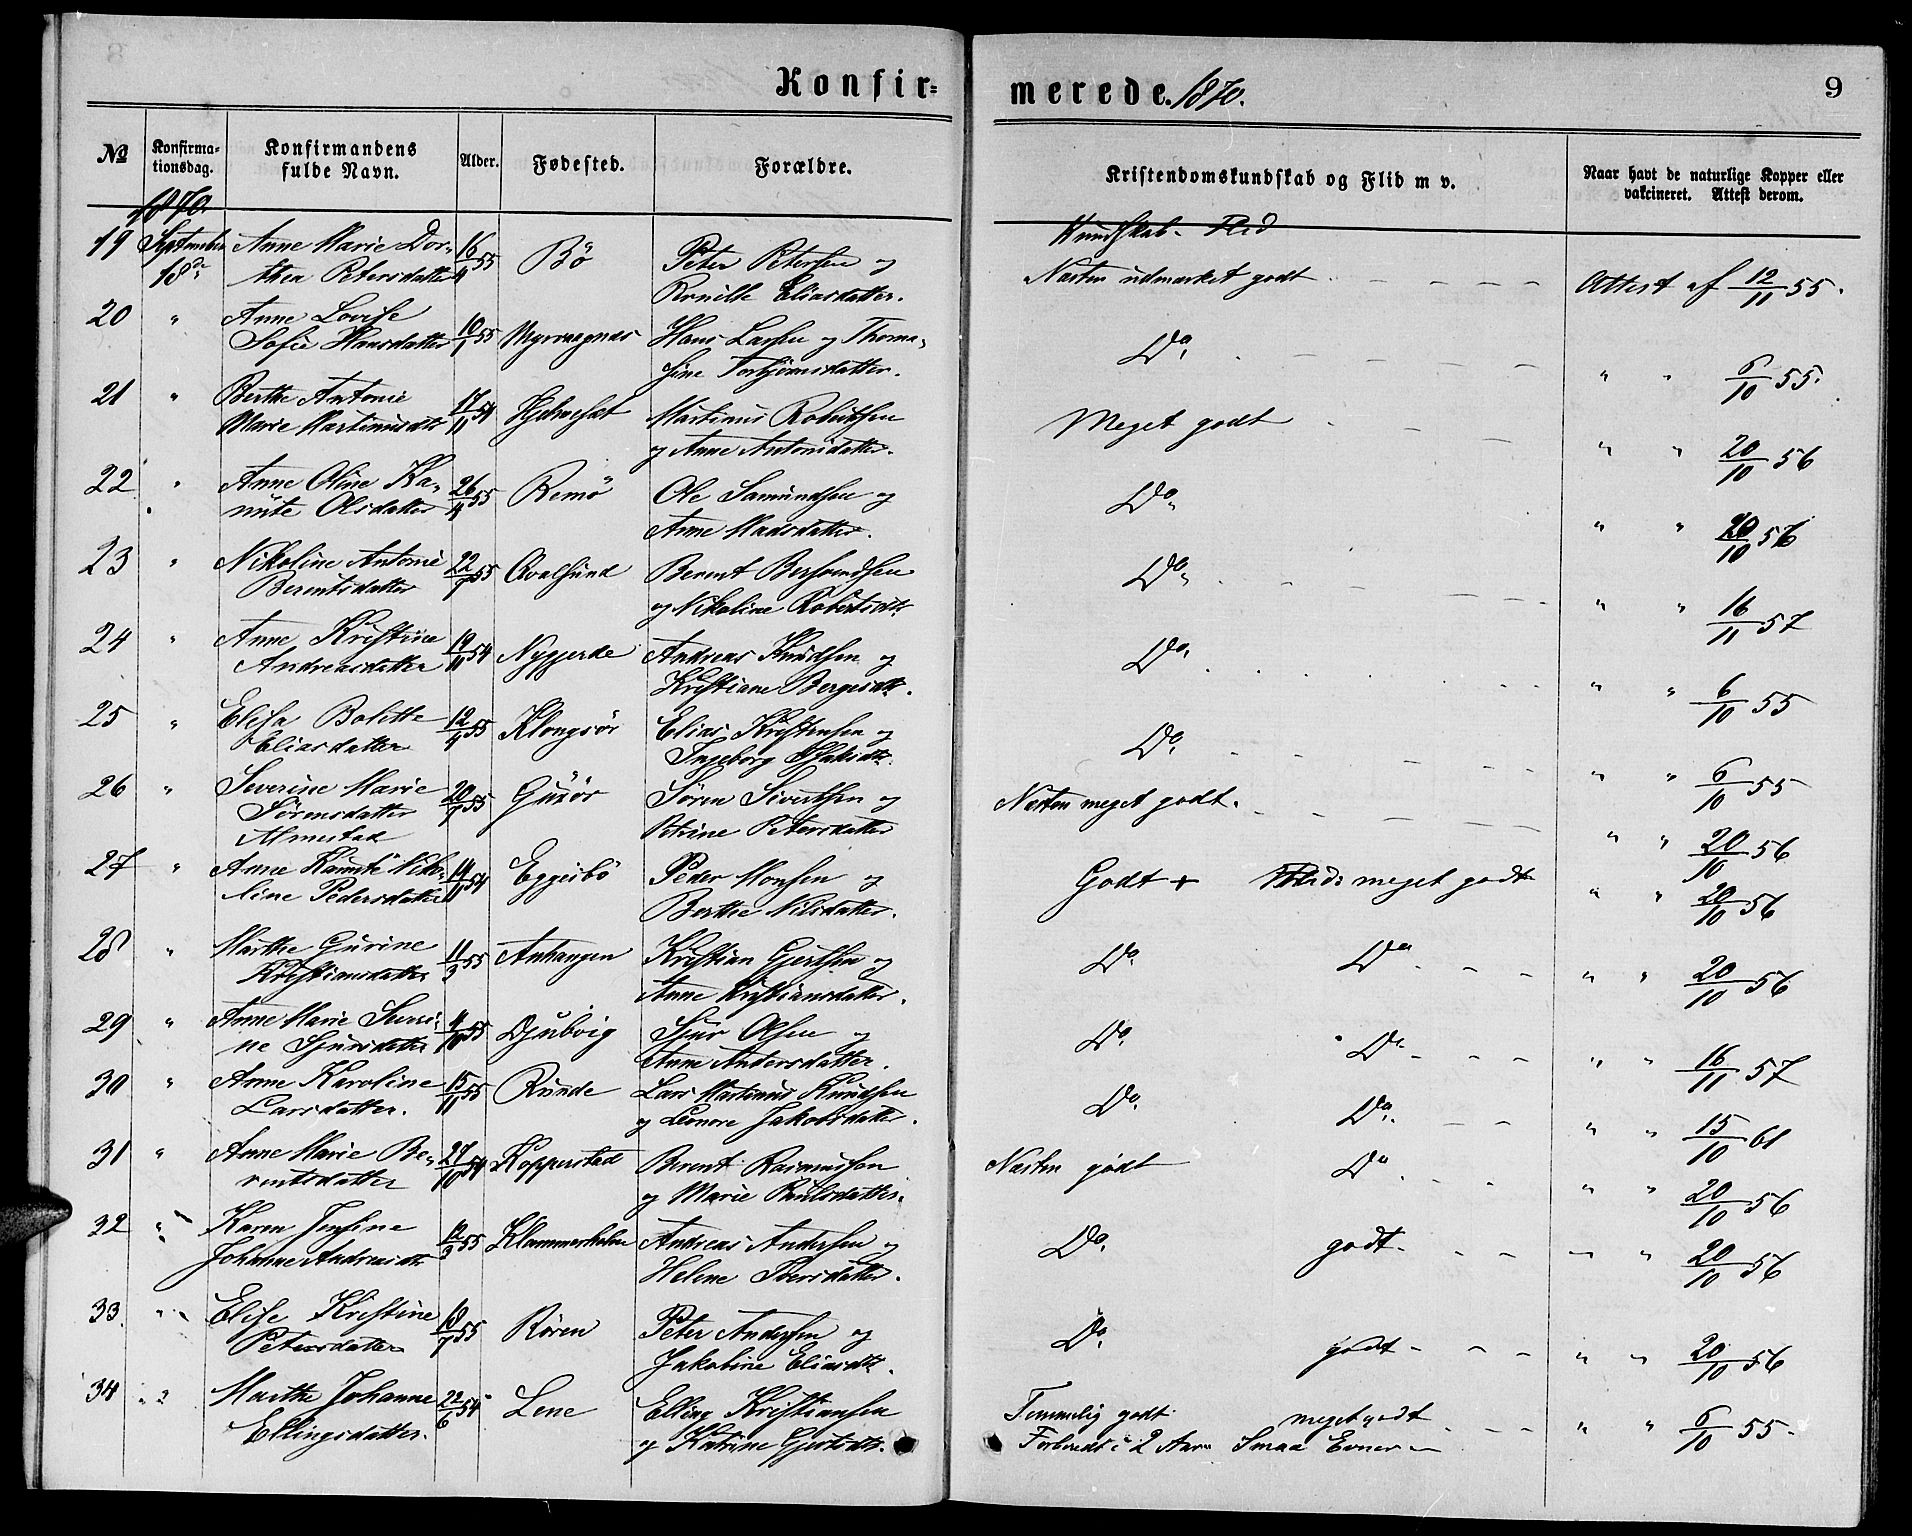 Konfirmerede. 1870. 9
№ Konfirmationsdag. Konfirmandens fulde Navn. Alder. Fødested. Forældre. Kristendomskundskab og Flid m v. Naar havt de naturlige Kopper eller vakcineret. Attest derom.
1870.
Kundskab - Flid
19 September 18de Anne Marie Dorthea Petersdatter 16/4 55 Bö Peter Petersen og Ronille Eliasdatter. Næsten udmærket godt - - - - Attest af 12/11 55.
20 " Anne Lovise Sofie Hansdatter 10/1 55 Myrvaagnes Hans Larsen og Thomasine Torbjörnsdatter. Do. - - - - " " 6/10 55.
21 " Berthe Antonie Marie Martinusdtr 17/11 54 Martinus Robertsen og Anne Antonisdatter. Meget godt - - - " " 20/10 56
22 " Anne Oline Kanute Olsdatter 26/4 55 Remö Ole Samundsen og Anne Madsdatter. Do. " " 20/10 56
23 " Nikoline Antonie Berentsdatter 22/7 55 Qvalsund Berent Bersvendsen og Nikoline Robertsdtr Do. - - - - " " 16/11 57
24 " Anne Kristine Andreasdatter 19/11 54 Nygjerde Andreas Knudsen og Kristiane Bergesdtr. Do. " " 6/10 55
25 " Elisa Bolette Eliasdatter 12/4 55 Klongsör Elias Kristensen og Ingeborg Do. - - - - " " 6/10 55
26 " Severine Marie Sörensdatter Almestad 20/7 55 Gusör Sören Sivertsen og Petrine Petersdatter Næsten meget godt. - - - - " " 20/10 56
27 " Anne Kanute Nikoline Pedersdatter 19/11 54 Eggesbö Peder Monsen og Berthe Nilsdatter. Godt + Flid: meget godt " " 20/10 56
28 " Marthe Gurine Kristiansdatter 11/3 55 Anhangen Kristian Gjertsen og Anne Kristiansdatter. Do. Do. - - - " " 20/10 56
29 " Anne Marie Severine Sjursdatter 4/10 55 Djubvig Sjur Olsen og Anne Andersdatter. Do. Do. - - - " " 16/11 57
30 " Anne Karoline Larsdatter. 15/11 55 Runde Lars Martinus Knudsen og Leonore Jakobsdatter. Do. Do. - - - " " 15/10 61
31 " Anne Marie Berentsdatter 27/10 54 Kopperstad Berent Rasmussen og Marie Paulsdatter. Næsten godt Do. - - - " " 20/10 56
32 " Karen Jensine Johanne Andreasdtr 12/3 55 Klammerholm Andreas Andersen og Helene Iversdatter. Do. godt. - - - " " 20/10 56
33. " Elise Kristine Petersdatter 18/7 55 Rören Peter Andersen og Jakobine Eliasdtr. Do. godt - - - " " 20/10 56
34 " Marthe Johanne Ellingsdatter. 22/6 54 Lene Elling Kristiansen og Katrine Gjertsdtr. Temmelig godt meget godt - - - " " 6/10 55.
Forberedt i 2 Aar Smaa Evner